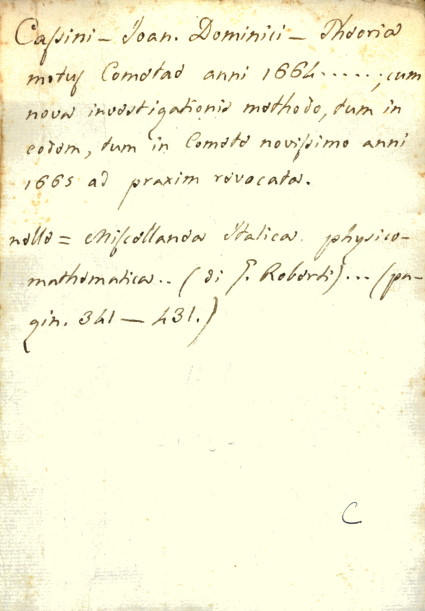 Caſsini – Joan. Dominici – Theoria
motuſ Cometae anni 1664......, cum
nova investigationis methodo, tum in
eodem, tum in Cometa noviſsimo anni
1665 ad praxim revocata.
nelle = Miſcellanea Italica physico-
mathematica.. ( di G. Roberti)... (pa-
gin. 341 – 431.)
C